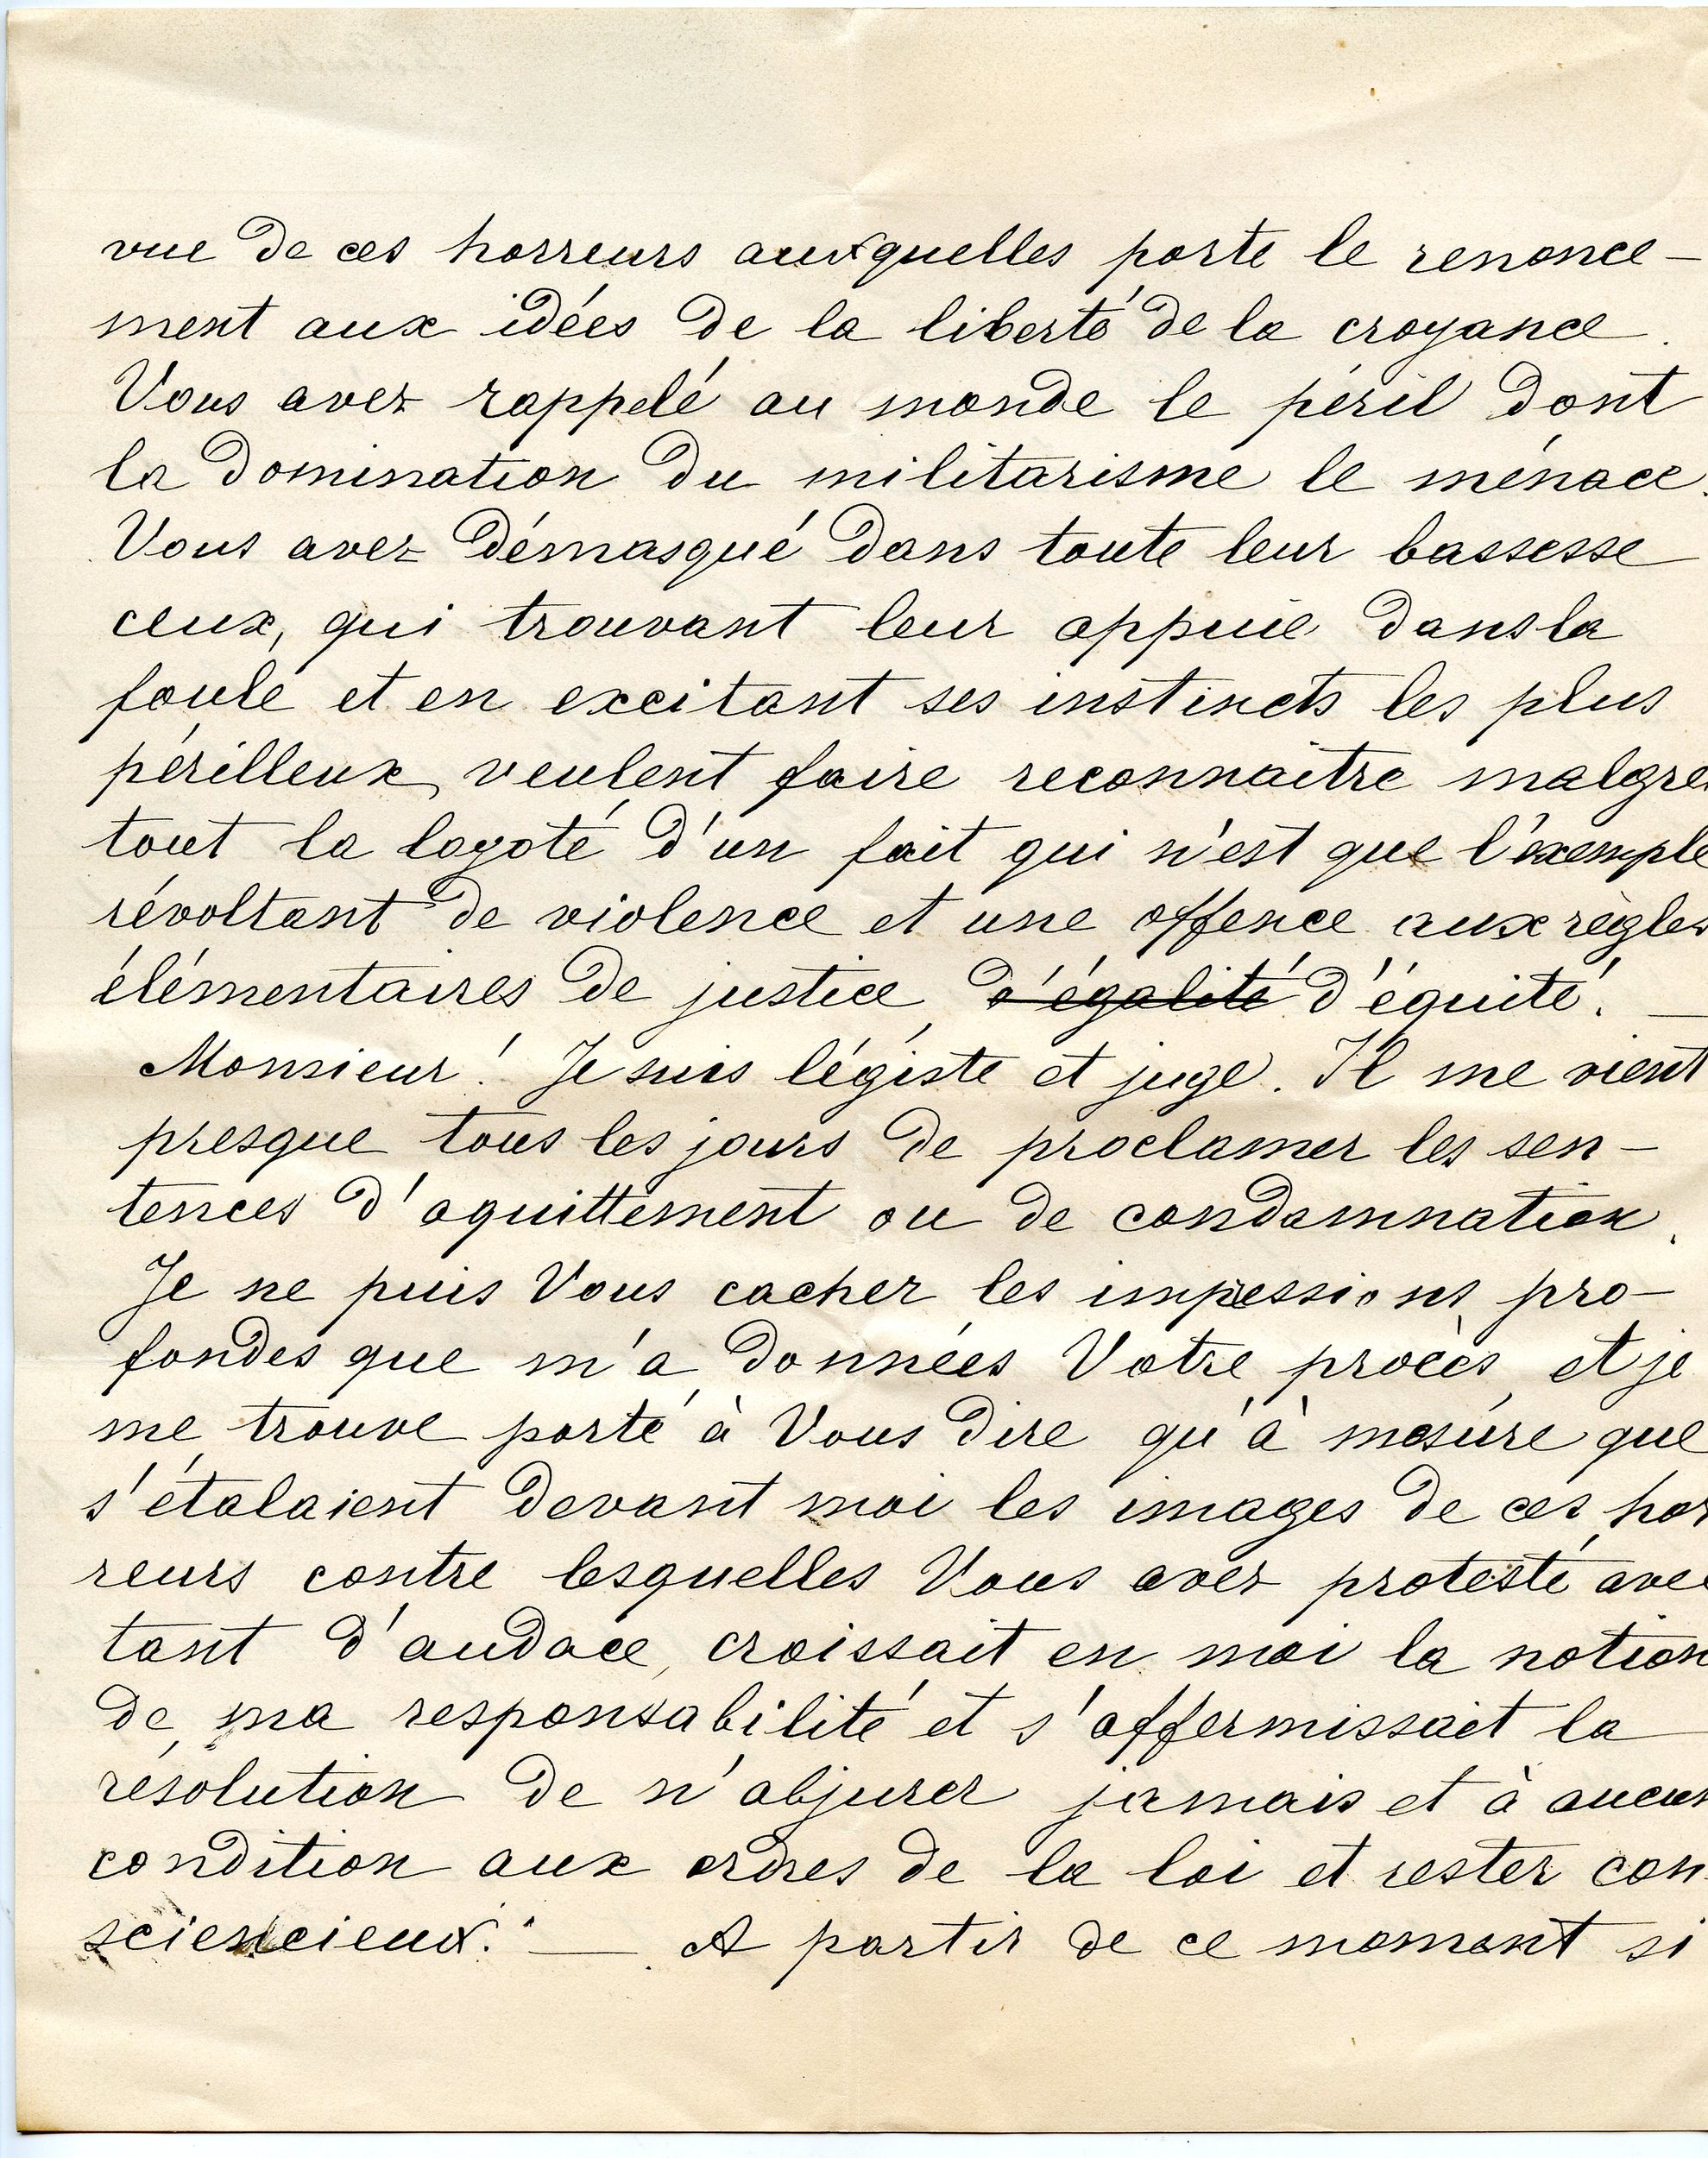 vue de ces horreurs auxquelles porte le renonce-
ment aux idées de la liberté de la croyance.
Vous avez rappelé au monde le péril dont
la domination du militarisme le ménace.
Vous avez démasqué dans toute leur bassesse
ceux, qui trouvant leur appuie dans la
foule et en excitant ses instincts les plus
périlleux, veulent faire reconnaitre malgré
tout la loyoté d'un fait qui n'est que l'éxemple
révoltant de violence et une offence aux règles
élémentaires de justice, d'égalité d'équité. —
Monsieur! Je suis légiste et juge. Il me vient
presque tous les jours de proclamer les sen-
tences d'aquittement ou de condamnation.
Je ne puis Vous cacher les impessions pro-
fondes que m'a données Votre procès, et je
me trouve porté à Vous dire qu'à mesure que
s'étalaient devant moi les images de ces hor
reurs contre lesquelles Vous avez protesté avec
tant d'audace, croissait en moi la notion
de ma responsabilité et s'affermissait la
résolution de n'abjurer jamais et à aucun
condition aux ordres de la loi et rester con-
sciencieux. — A partir de ce moment si